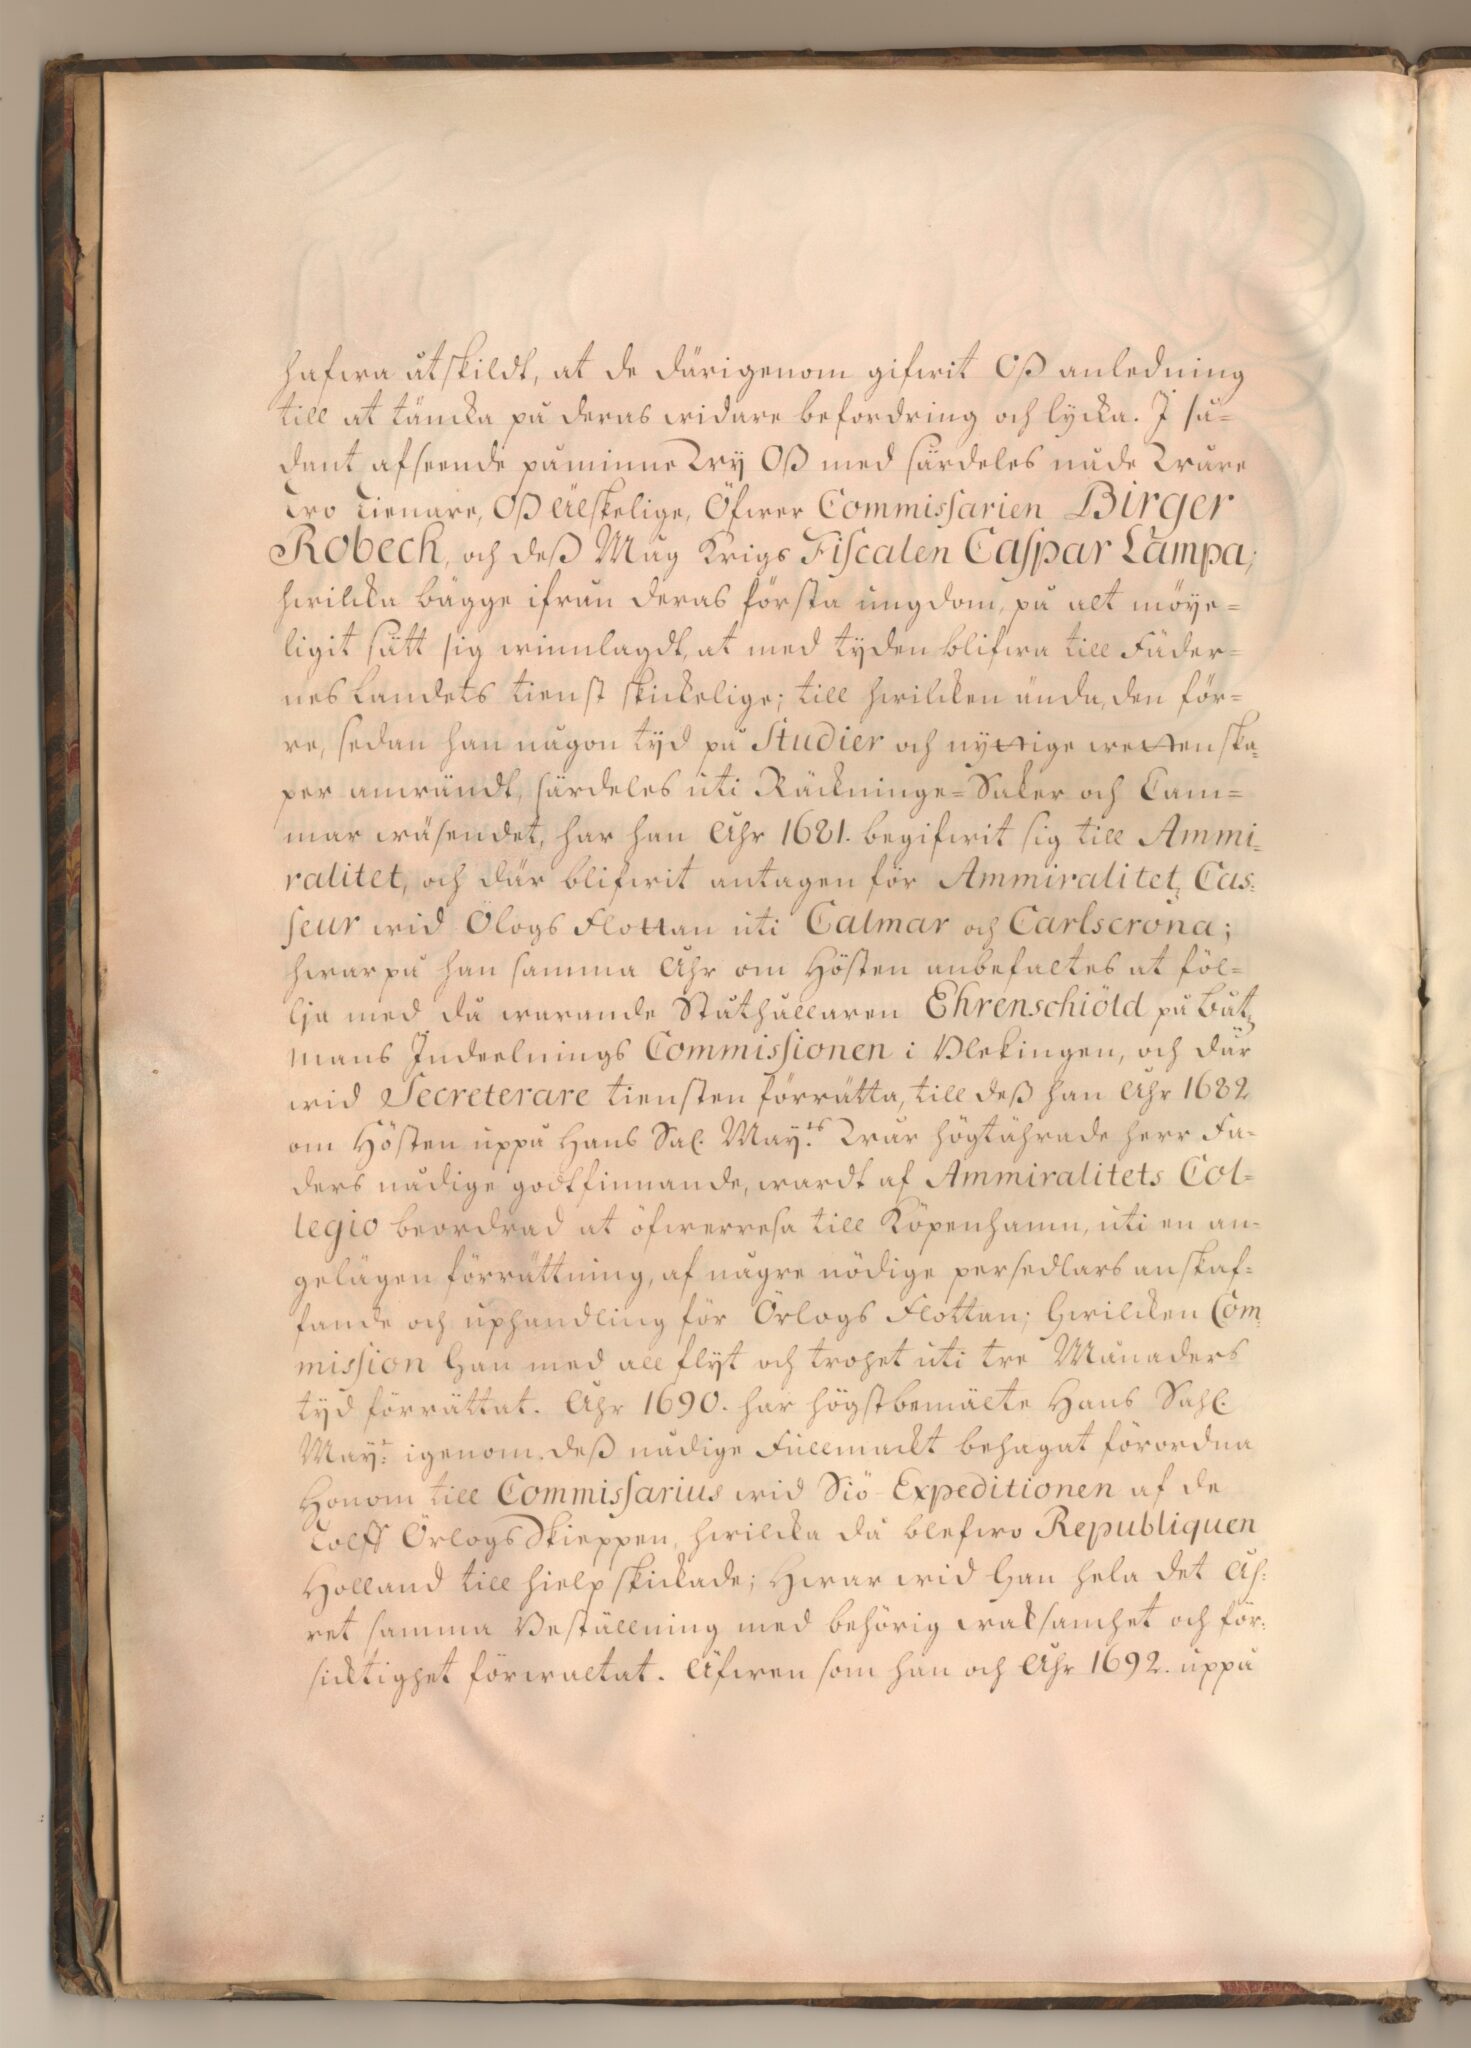 hafwa utskildt, at de därigenom gifwit Oß anledning
till at täncka på deras widare befordring och lycka. I så-
dant afseende påminne Wy Oß med särdeles nåde Wåre
Tro Tienare, Oß Älskelige, Öfwer Commissarien Birger
Robeck, och deß Måg Krigs Fiscalen Caspar Lampa;
hwilcka bägge ifrån deras första ungdom, på alt möye-
ligit sätt sig winnlagdt, at med tyden blifwa till Fäder-
nes Landets tienst skickelige; till hwilcken ända, den för-
re, sedan han någon tyd på Studier och nyttige wettenska-
per anwändt, särdeles uti Räckninge-Saker och Cam-
mar wäsendet, har han Åhr 1681. begifwit sig till Ammi-
ralitet, och där blifwit antagen för Ammiralitet, Cas-
seur wid Ölogs Flottan uti Calmar och Carlscrona;
hwarpå han samma Åhr om Hösten anbefaltes at föl-
lja med då warande Ståthållaren Ehrenschiöld på Båt-
mans Indeelnings Commissionen i Blekingen, och där
wid Secreterare tiensten förrätta, till deß han Åhr 1682
om Hösten uppå Hans Sal. May:ts Wår högtährade herr Fa-
ders nådige godtfinnande, wardt af Ammiralitets Col-
legio beordrad at öfwerresa till Köpenhamn, uti en an-
gelägen förrättning, af någre nödige persedlars anskaf-
fande och uphandling för Örlogs Flottan; Hwilcken Com-
mission Han med all flyt och trohet uti tre Månaders
tyd förrättat. Åhr 1690. har högstbemälte Hans Sahl.
May:t igenom deß nådige Fullmackt behagat förordna
Honom till Commissarius wid Siö-Expeditionen af de
Tolff Örlogs Skieppen, hwilcka då blefwo Republiquen
Holland till hielp skickade; Hwar wid Han hela det Åh-
ret samma Beställning med behörig waksamhet och för-
sicktighet förwaltat. Äfwen som han och Åhr 1692. uppå